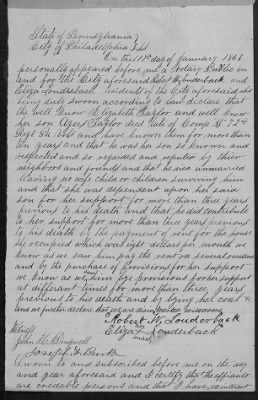 State of Pennsylvania
City of Philadelphia SS
On this 11th day of January 1868
personally appeared before me a Notary Public in
and for the City aforesaid Robert H Louderback and
Eliza Louderback residents of the City aforesaid who
being duly sworn according to law declare that
they well know Elizabeth Taylor and well knew
her son Taylor late of Comp G 72d
Regt Pa Vols and have known them for more than
ten years and that he was her son so known and
reflected and so regarded and reputed by their
neighbors and friends and that he died unmarried
leaving no wife child or children surviving him
and that she was dependent upon her said
son for her support for more than three years
previous to his death and that he did contribute
to her support for more than three years previous
to his death by the payment of rent for the house
she occupied which was eight dollars per month we
know as we saw him pay the rent on several occasions
and by the purchase of provisions for her support
we know as we saw him buy provisions for her support
at different times for more than three years
previous to his death and by buying her coal &
and we further declare that we are
Robert H, Louderback
Eliza Louderback
mark
Witness
John H. Bingwell
Joseph
Sworn to and subscribed before me on the day
and year aforesaid and I certify that the affiants
are credable persons and that I have no interest